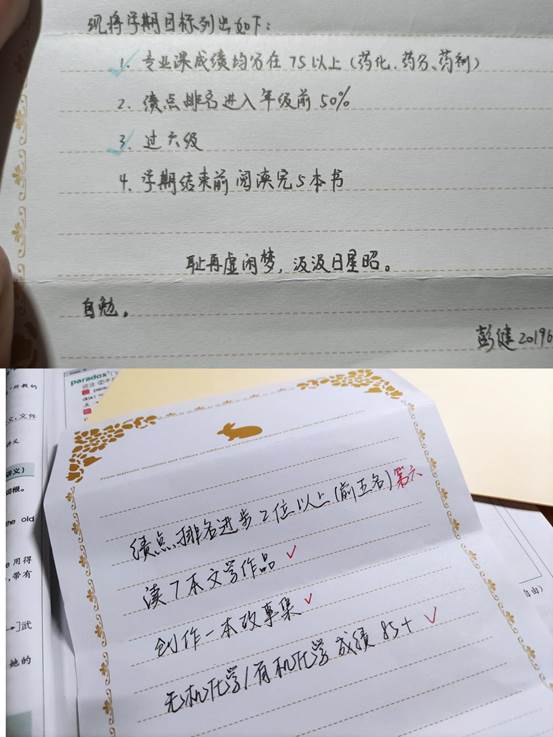 现将学期目标列出如下:
1. 专业课成绩均分在75以上(药化、药分、药剂)
2. 绩点排名进入年级前50%
3. 过六级
4. 学期结束前阅读完5本书
耻再虚闲梦,汲汲日星昭。
自勉。
彭健 20196
paradox
义,文件
讲义)
词根。
he old
用得
,带有
→]武
她的
绩点排名进步2位以上(前五名)第六
读7本文学作品✓
创作一本故事集✓
无机化学/有机化学成绩85+ ✓